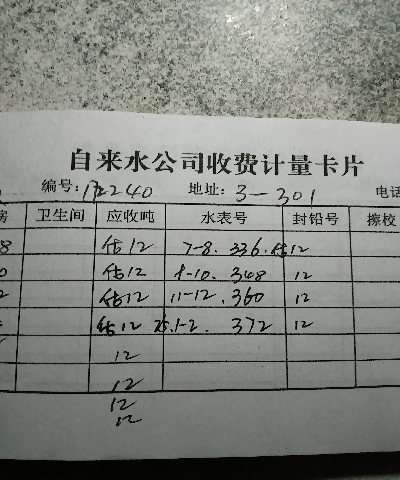 自来水公司收费计量卡片
编号: 172240 地址: 3-301 电话
房 卫生间 应收吨 水表号 封铅号 擦校
8 估12 7-8. 336. 估12
0 估12 9-10. 348 12
2 估12 11-12. 360 12
估12 25.1-2. 372 12
12
12
12
12